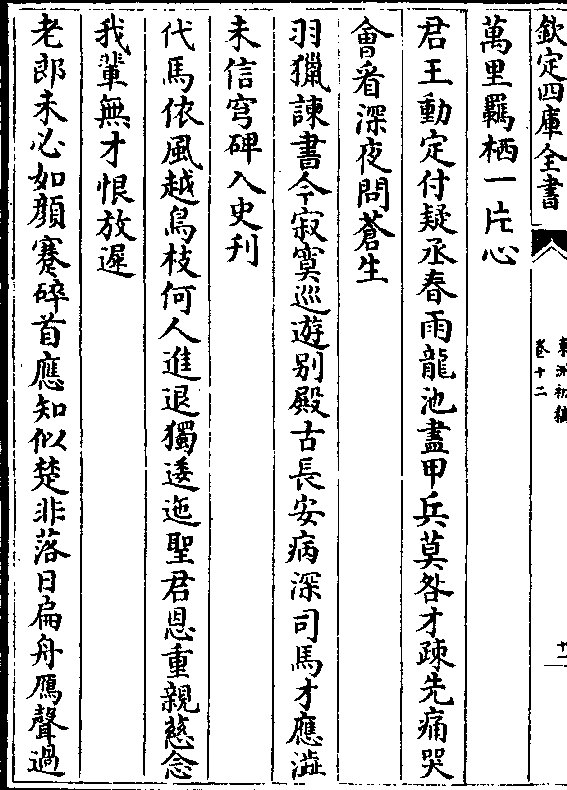 欽定四庫全書
卷十二
萬里羈栖一片心
君王動定付疑丞春雨龍池盡甲兵莫咎才疎先痛哭
會看深夜問蒼生
羽獵諫書今寂寞巡遊别殿古長安病深司馬才應澁
未信穹碑入史刋
代馬依風越鳥枝何人進退獨逶迤聖君恩重親慈念
我輩無才恨放遲
老郎未必如顔蹇碎首應知似楚非落日扁舟鴈聲過